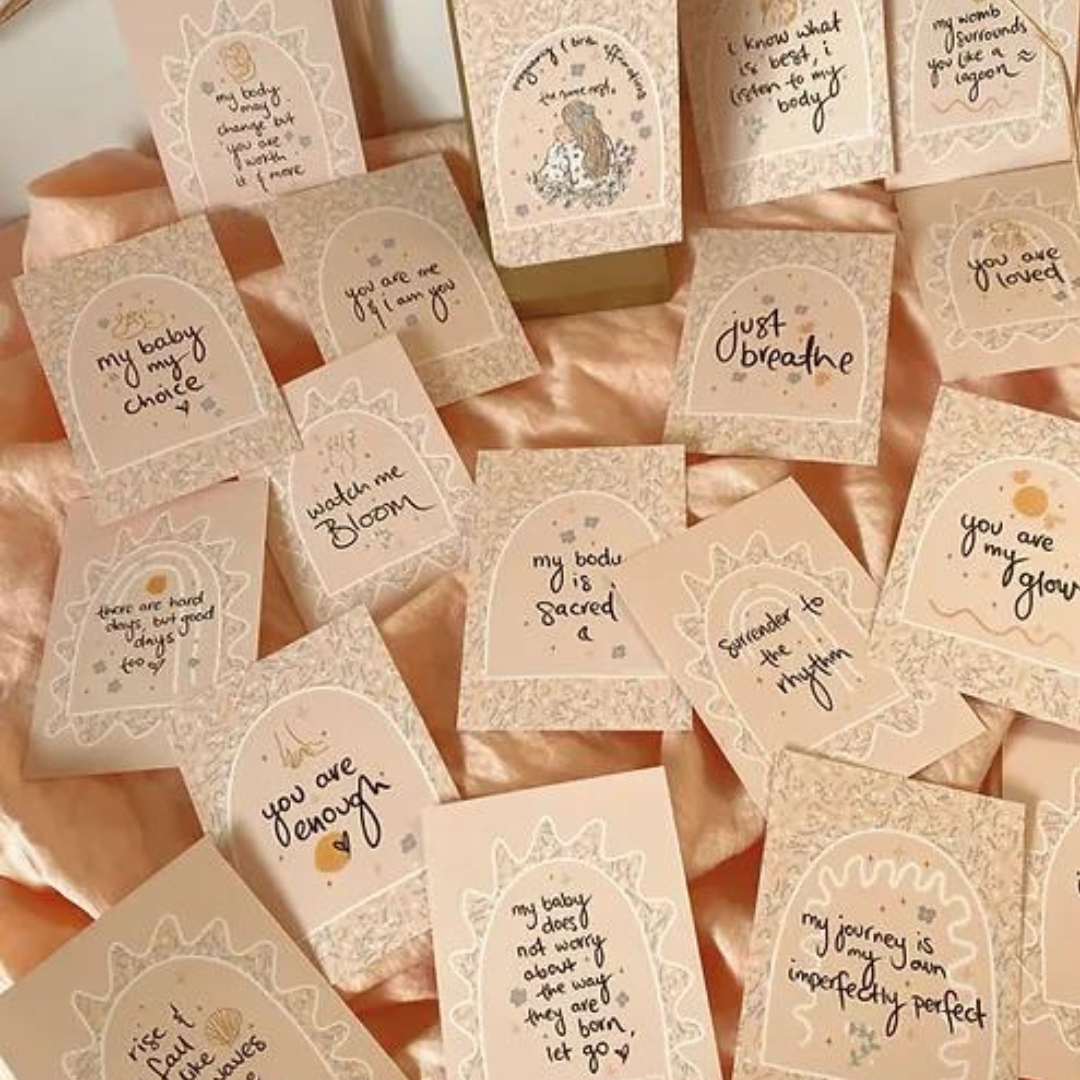 my body
may
change but
you are
worth
it & more
pregnancy & birth affirmations
i know what
is best, i
listen to my
body
my womb
surrounds
you like a
lagoon
you are me
& i am you
you are
loved
my baby
my
choice
just
breathe
watch me
Bloom
you are
my
glow
my body
is
sacred
a
there are hard
days, but good
days
too
surrender to
the
rhythm
you are
enough
my baby
does
not worry
about
the way
they are
born,
let go
my journey is
my own
imperfectly perfect
rise &
fall
like
waves